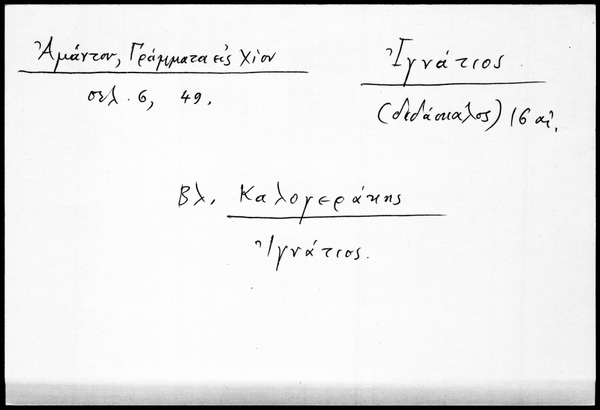 Ἀμάντου, Γράμματα εἰς Χίον
σελ. 6, 49.
Ἰγνάτιος.
(διδάσκαλος) 16 αἰ.
Βλ. Καλογεράκης
Ἰγνάτιος.